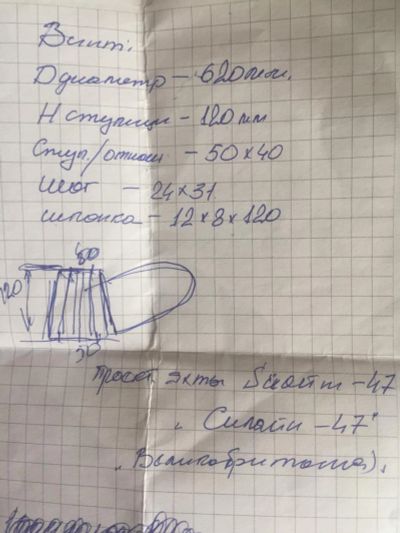 Винт:
Dдиаметр – 620мм.
H ступицы - 120мм
Ступ./
– 50×40
Шаг – 24×31
шпонка – 12×8×120
120
50
яхты
-47
Силайн -47"
Великобритания).